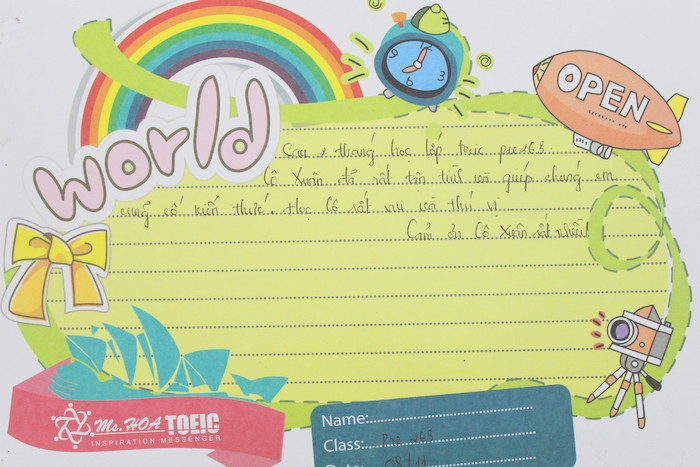 world
OPEN
Sau 2 tháng học lớp toeic pre 263.
Cô Xuân đã rất tận tình và giúp chúng em
củng cố kiến thức. Học Cô rất vui và thú vị
Cảm ơn Cô Xuân rất nhiều!
Ms. HOA TOEIC
INSPIRATION MESSENGER
Name:
Class: Pre 263
Date: 08/11